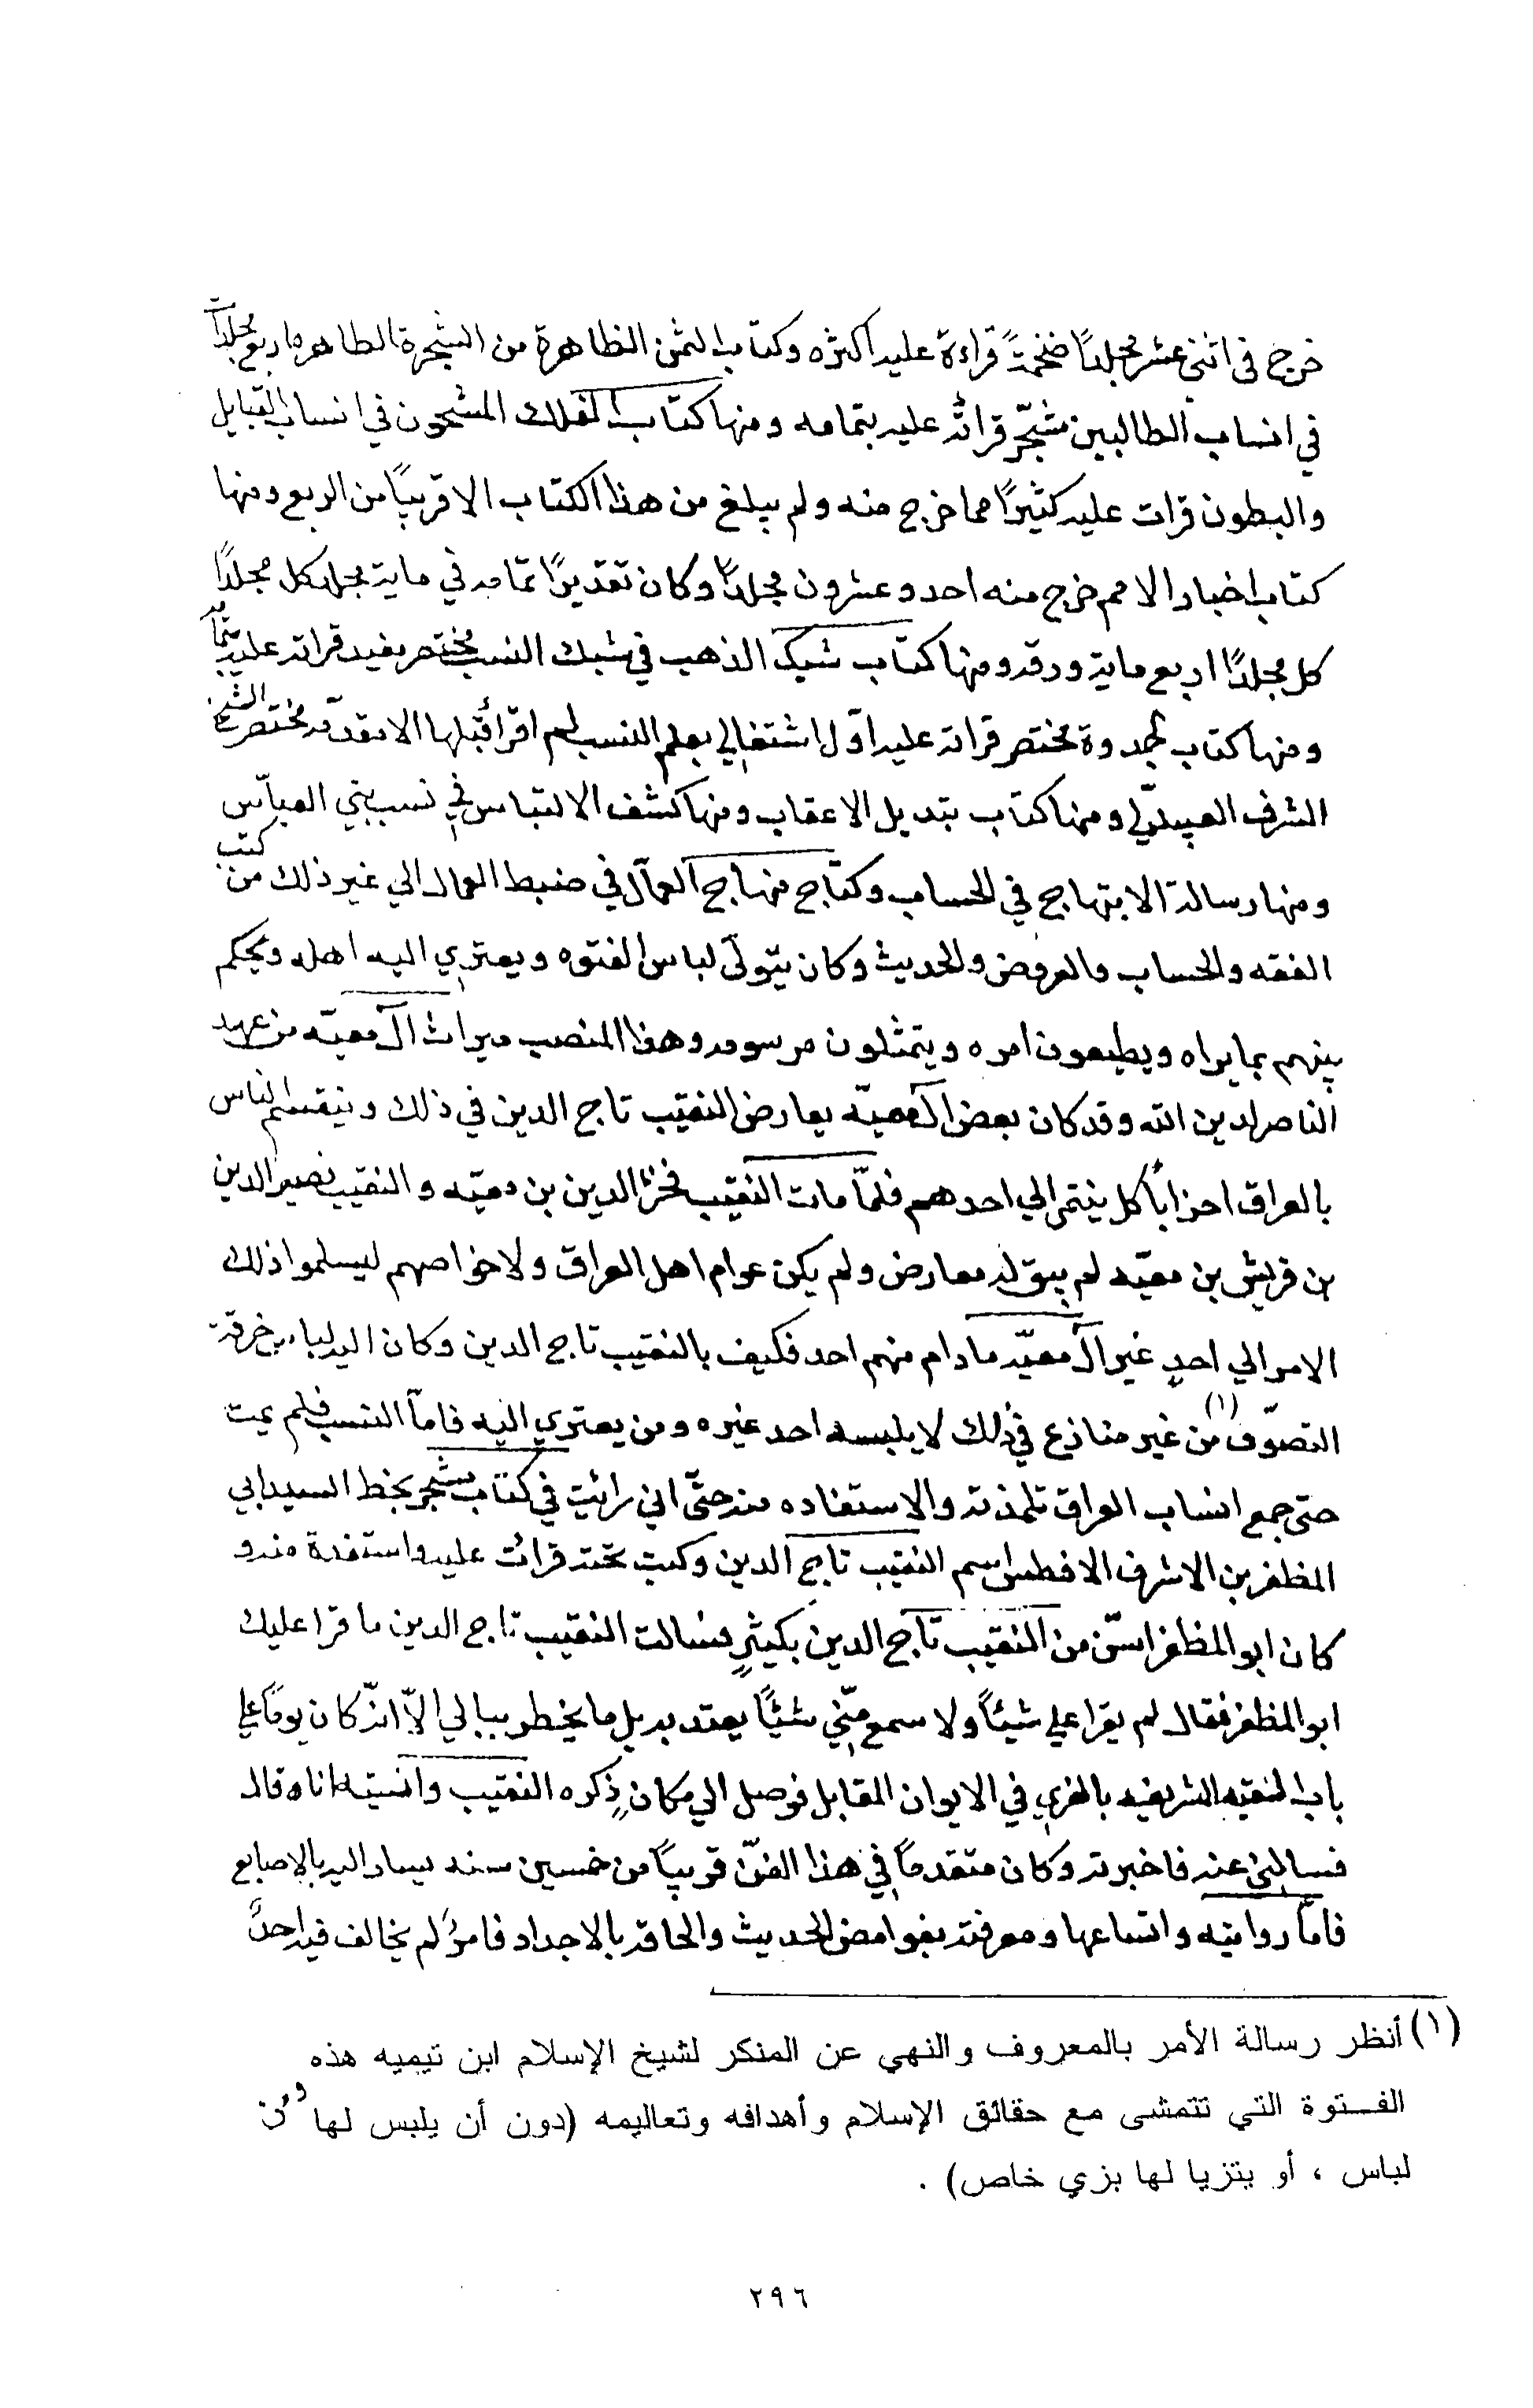 خرج في اثنى عشر مجلدًا ضخمتً قراءة عليه اكثره وكتاب الثمرة الظاهرة من الشجرة الطاهره اربع مجلدات
في انساب الطالبين مشجّر قرأته عليه بتمامه ومنها كتاب الفلك المشحون في انساب القبايل
والبطون قرات عليه كثيرًا مما خرج منه ولم يبلغ من هذا الكتاب الا قريبًا من الربع ومنها
كتاب اخبار الامم خرج منه احد وعشرون مجلدًا وكان تقديرًا تمامه في ماية مجلد كل مجلدًا
كل مجلدًا اربع ماية ورقه ومنها كتاب سبك الذهب في شبك النسب مختصر مفيد قراته عليه بتمامه
ومنها كتاب مختصر قراته عليه اوّل اشتغالي بعلم النسب لم اقرأ قبلها الا مقدّمه مختصره الشيخ
الشرف العبيدلي ومنها كتاب تبديل الاعقاب ومنها كشف الالتباس في نسب بني العباس
ومنها رسالة الابتهاج في الحساب وكتاب منهاج العمال في ضبط الاعمال الي غير ذلك من كتب
الفقه والحساب والعروض والحديث وكان يتولّى لباس الفتوه ويعتزي اليه اهله ويحكم
بينهم بما يراه ويطيعون امره ويتمثلون مرسومه وهذا المنصب ميراث آل معيّه من عهد
الناصر لدين الله وقد كان بعض آل معيّه يعارض النقيب تاج الدين في ذلك وينقسم الناس
بالعراق احزابًا كل ينتمي الي احدهم فلمّا مات النقيب فخر الدين بن معيّه والنقيب نصير الدين
بن قريش بن معيّه لم يبق له معارض ولم يكن عوام اهل العراق ولا خواصهم ليسلموا ذلك
الامر الي احدٍ غير آل معيّه ما دام منهم احد فكيف بالنقيب تاج الدين وكان اليه لباس خرقة
التصوّف (١) من غير منازع في ذلك لا يلبسه احد غيره ومن يعتزي اليه فامّا النسب فلم يمت
حتى جمع انساب العراق تلمذته والاستفاده منه حتّى اني رائيت في كتاب مشجر بخط السيد ابي
المظفر بن الاشرف الافطس اسم النقيب تاج الدين وكتب تحته قرائت عليه واستفدة منه و
كان ابو المظفر اسنّ من النقيب تاج الدين بكثيرٍ فسالت النقيب تاج الدين ما قرا عليك
ابو المظفر فقال لم يقرا علي شيئًا ولا سمع منّي شيئًا يعتد به بل ما يخطر ببالي الاّ انّه كان يومًا علي
باب القبه الشريفه بالغري في الايوان المقابل فوصل الي مكانٍ ذكره النقيب وانسيته انا قال
فسالني عنه فاخبرته وكان متقدمًا في هذا الفنّ قريبًا من خمسين سنه يسار اليه بالاصابع
فامّا روايته واتساعها ومعرفته بغوامض الحديث والحاقه بالاجداد فامرٌ لم يخالف فيه احدٌ
(١) أنظر رسالة الأمر بالمعروف والنهي عن المنكر لشيخ الإسلام ابن تيميه هذه
الفـتوة التي تتمشى مع حقائق الإسلام وأهدافه وتعاليمه (دون أن يلبس لها
لباس ، أو يتزيا لها بزي خاص) .
٢٩٦